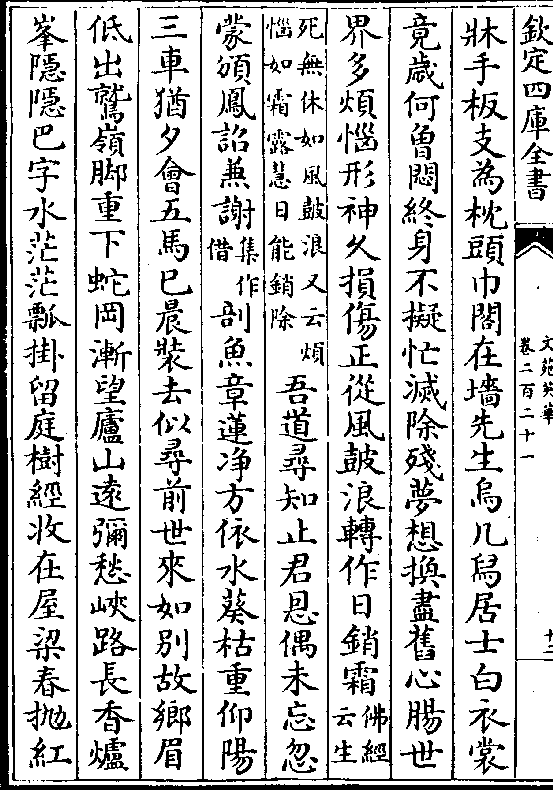 欽定四庫全書
文苑英華
卷二百二十一
牀手板支為枕頭巾閣在墻先生烏几舄居士白衣裳
竟歳何曽悶終身不擬忙滅除殘夢想換盡舊心腸世
界多煩惱形神久損傷正從風鼓浪轉作日銷霜佛經云生
死無休如風鼓浪又云煩惱如霜露慧日能銷除吾道尋知止君恩偶未忘忽
蒙頒鳳詔兼謝集作借剖魚章蓮净方依水葵枯重仰陽
三車猶夕會五馬已晨裝去似尋前世來如别故鄉眉
低出鷲嶺脚重下蛇岡漸望廬山逺彌愁峽路長香爐
峯隠隠巴字水茫茫瓢掛留庭樹經收在屋梁春抛紅